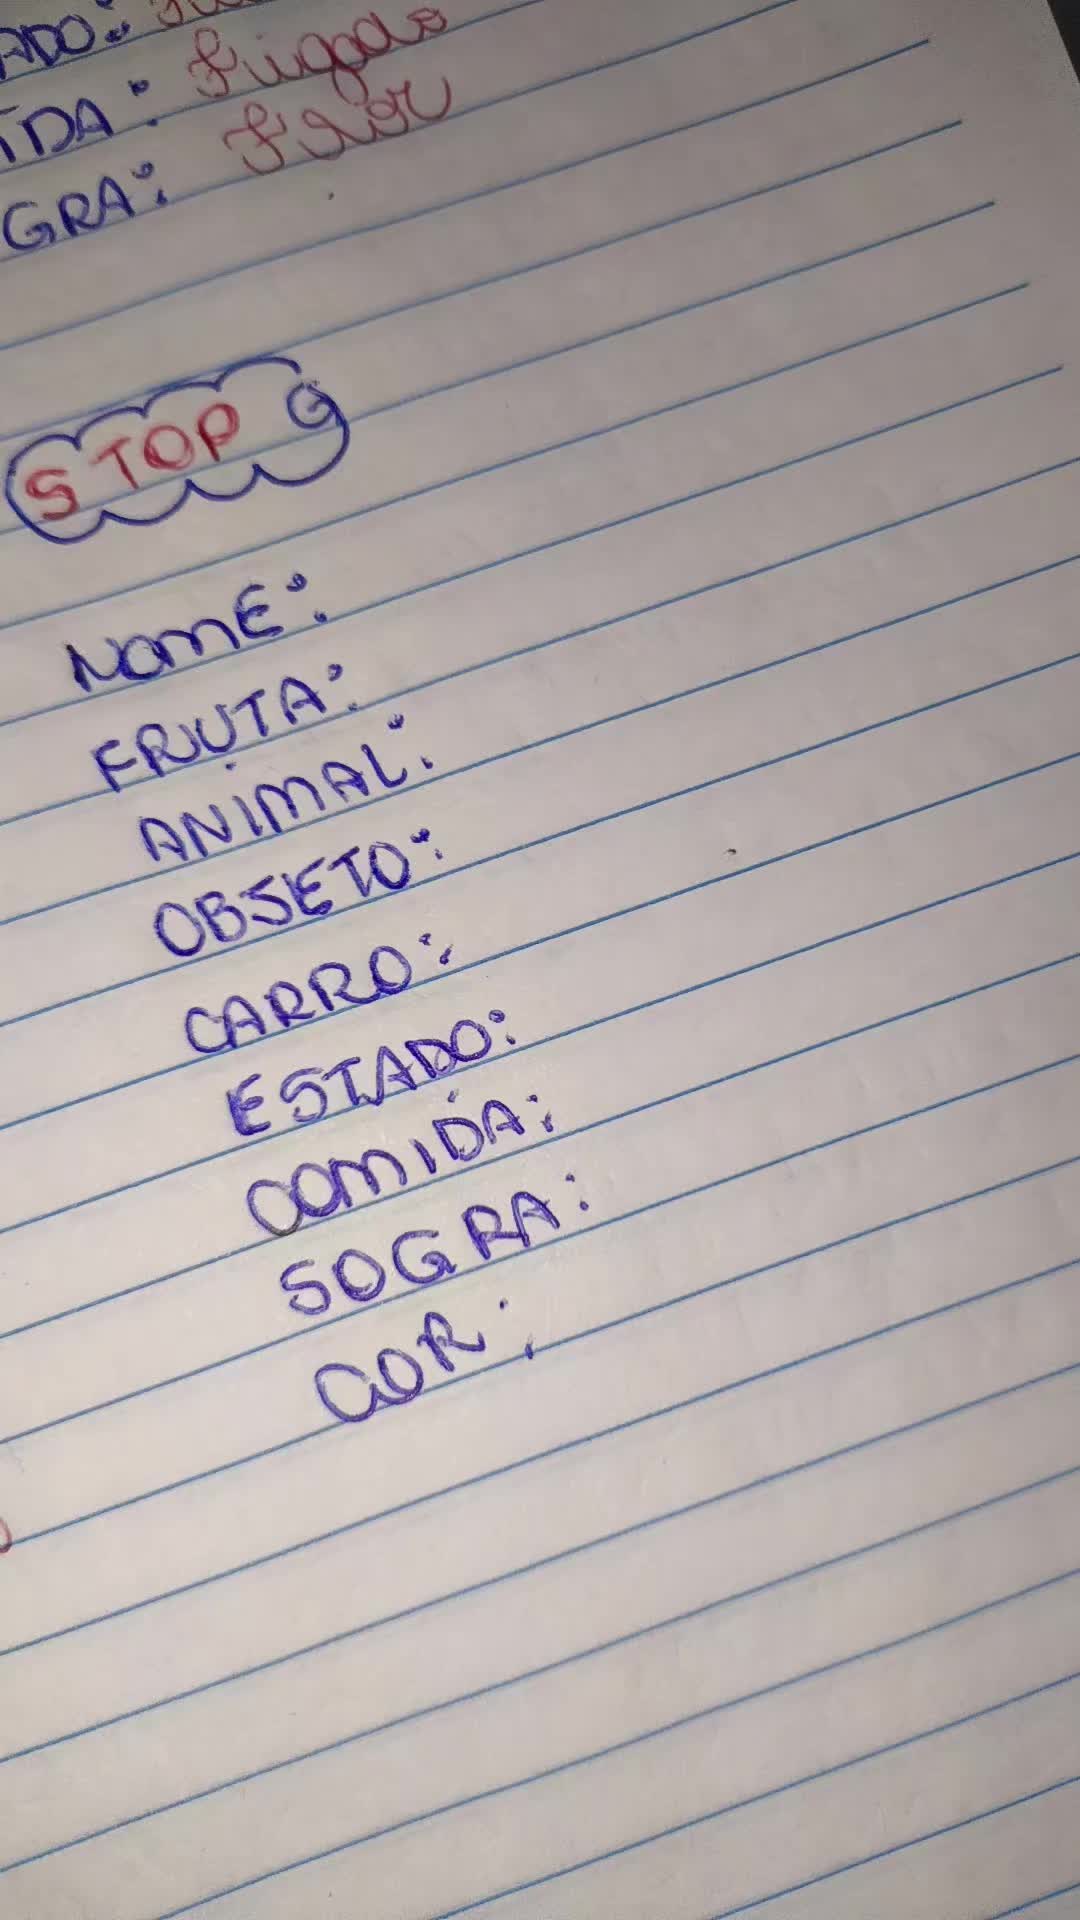 ADO:
IDA: Fígado
GRA: Feia
STOP G
NOME:
FRUTA:
ANIMAL:
OBJETO:
CARRO:
ESTADO:
COMIDA:
SOGRA:
COR: